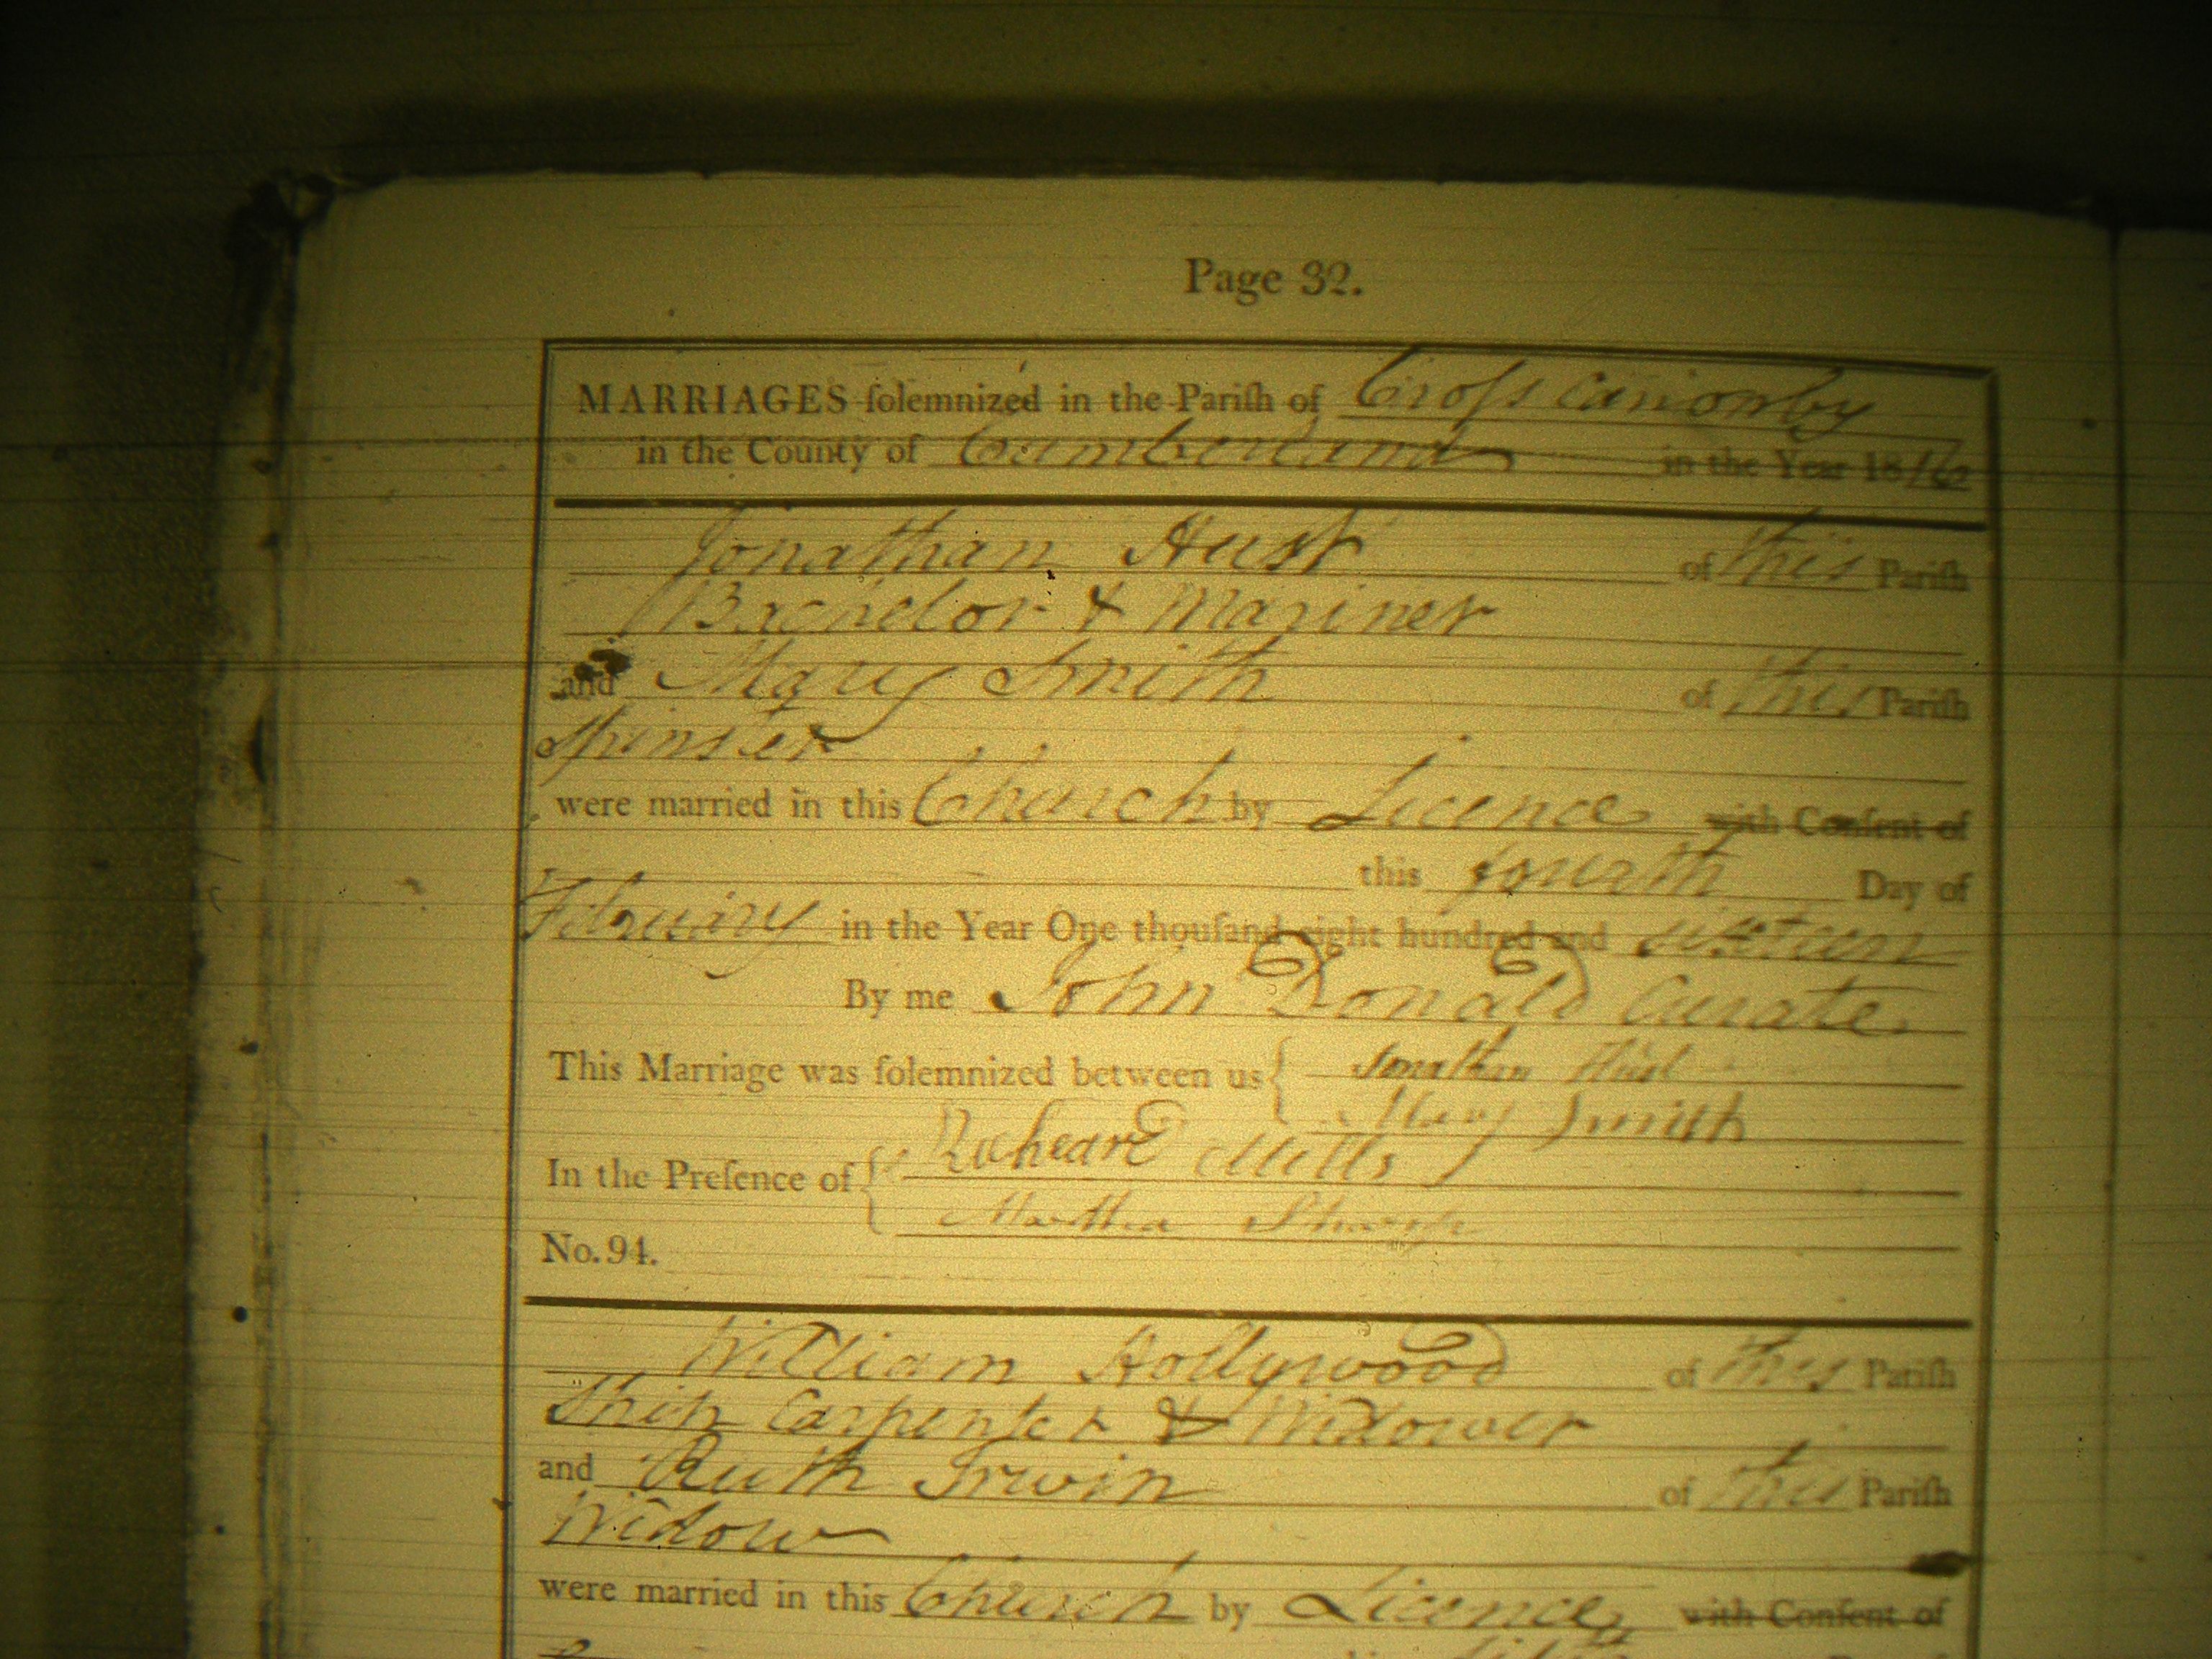 Page 32.
MARRIAGES solemnized in the Parish of Cross canonby
in the County of Cumberland in the Year 1816
Jonathan Hust of this Parish
Bachelor & Mariner
and Mary Smith of this Parish
Spinster
were married in this Church by Licence with Consent of
this fourth Day of
February in the Year One thousand eight hundred and sixteen
By me John Donald Curate
This Marriage was solemnized between us Jonathan Hust
Mary Smith
In the Presence of Micheard Mills
Martha Sharpe
No. 94.
William Hollywood of this Parish
Ship Carpenter & Widower
and Ruth Irwin of this Parish
Widow
were married in this Church by Licence with Consent of